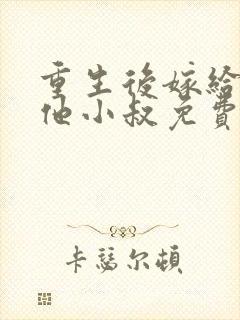 重生後嫁給
他小叔免費
卡瑟尔頓